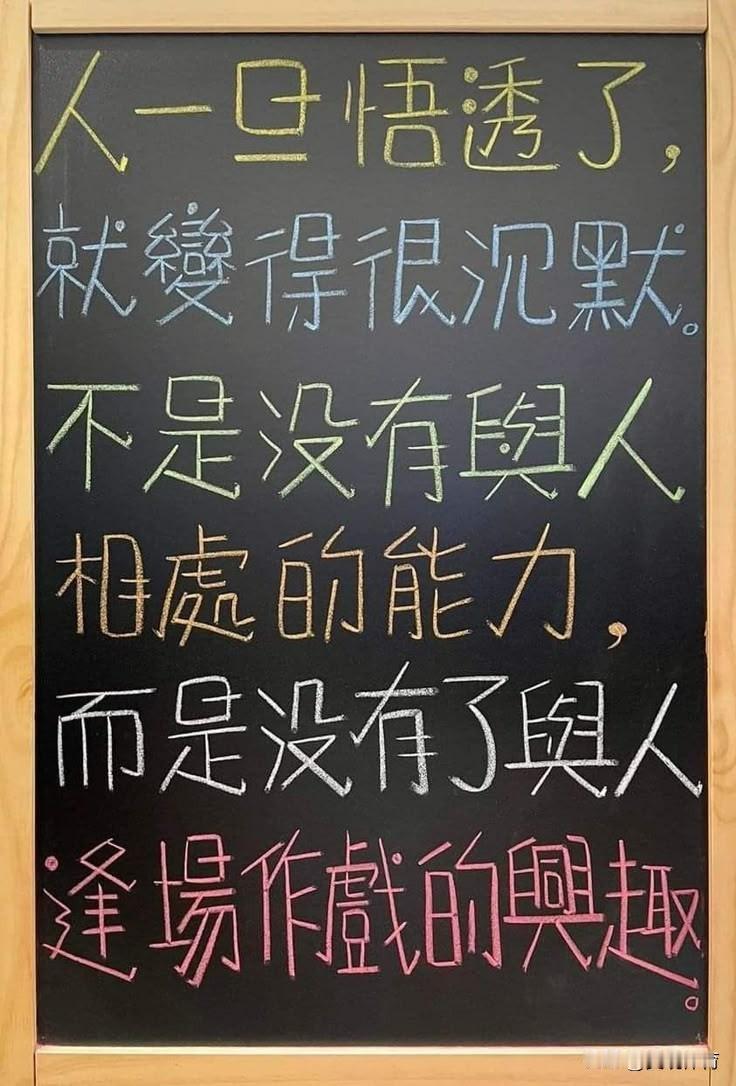 人一旦悟透了，
就變得很沉默。
不是没有與人
相處的能力，
而是没有了與人
逢場作戲的興趣。